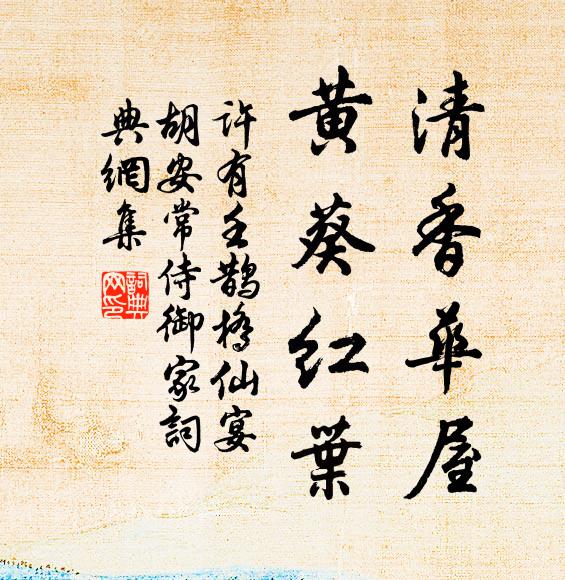 清香華屋
黃葵紅葉
許有壬鵲橋仙宴
胡安常侍御家詞
典網集
詞典
网印